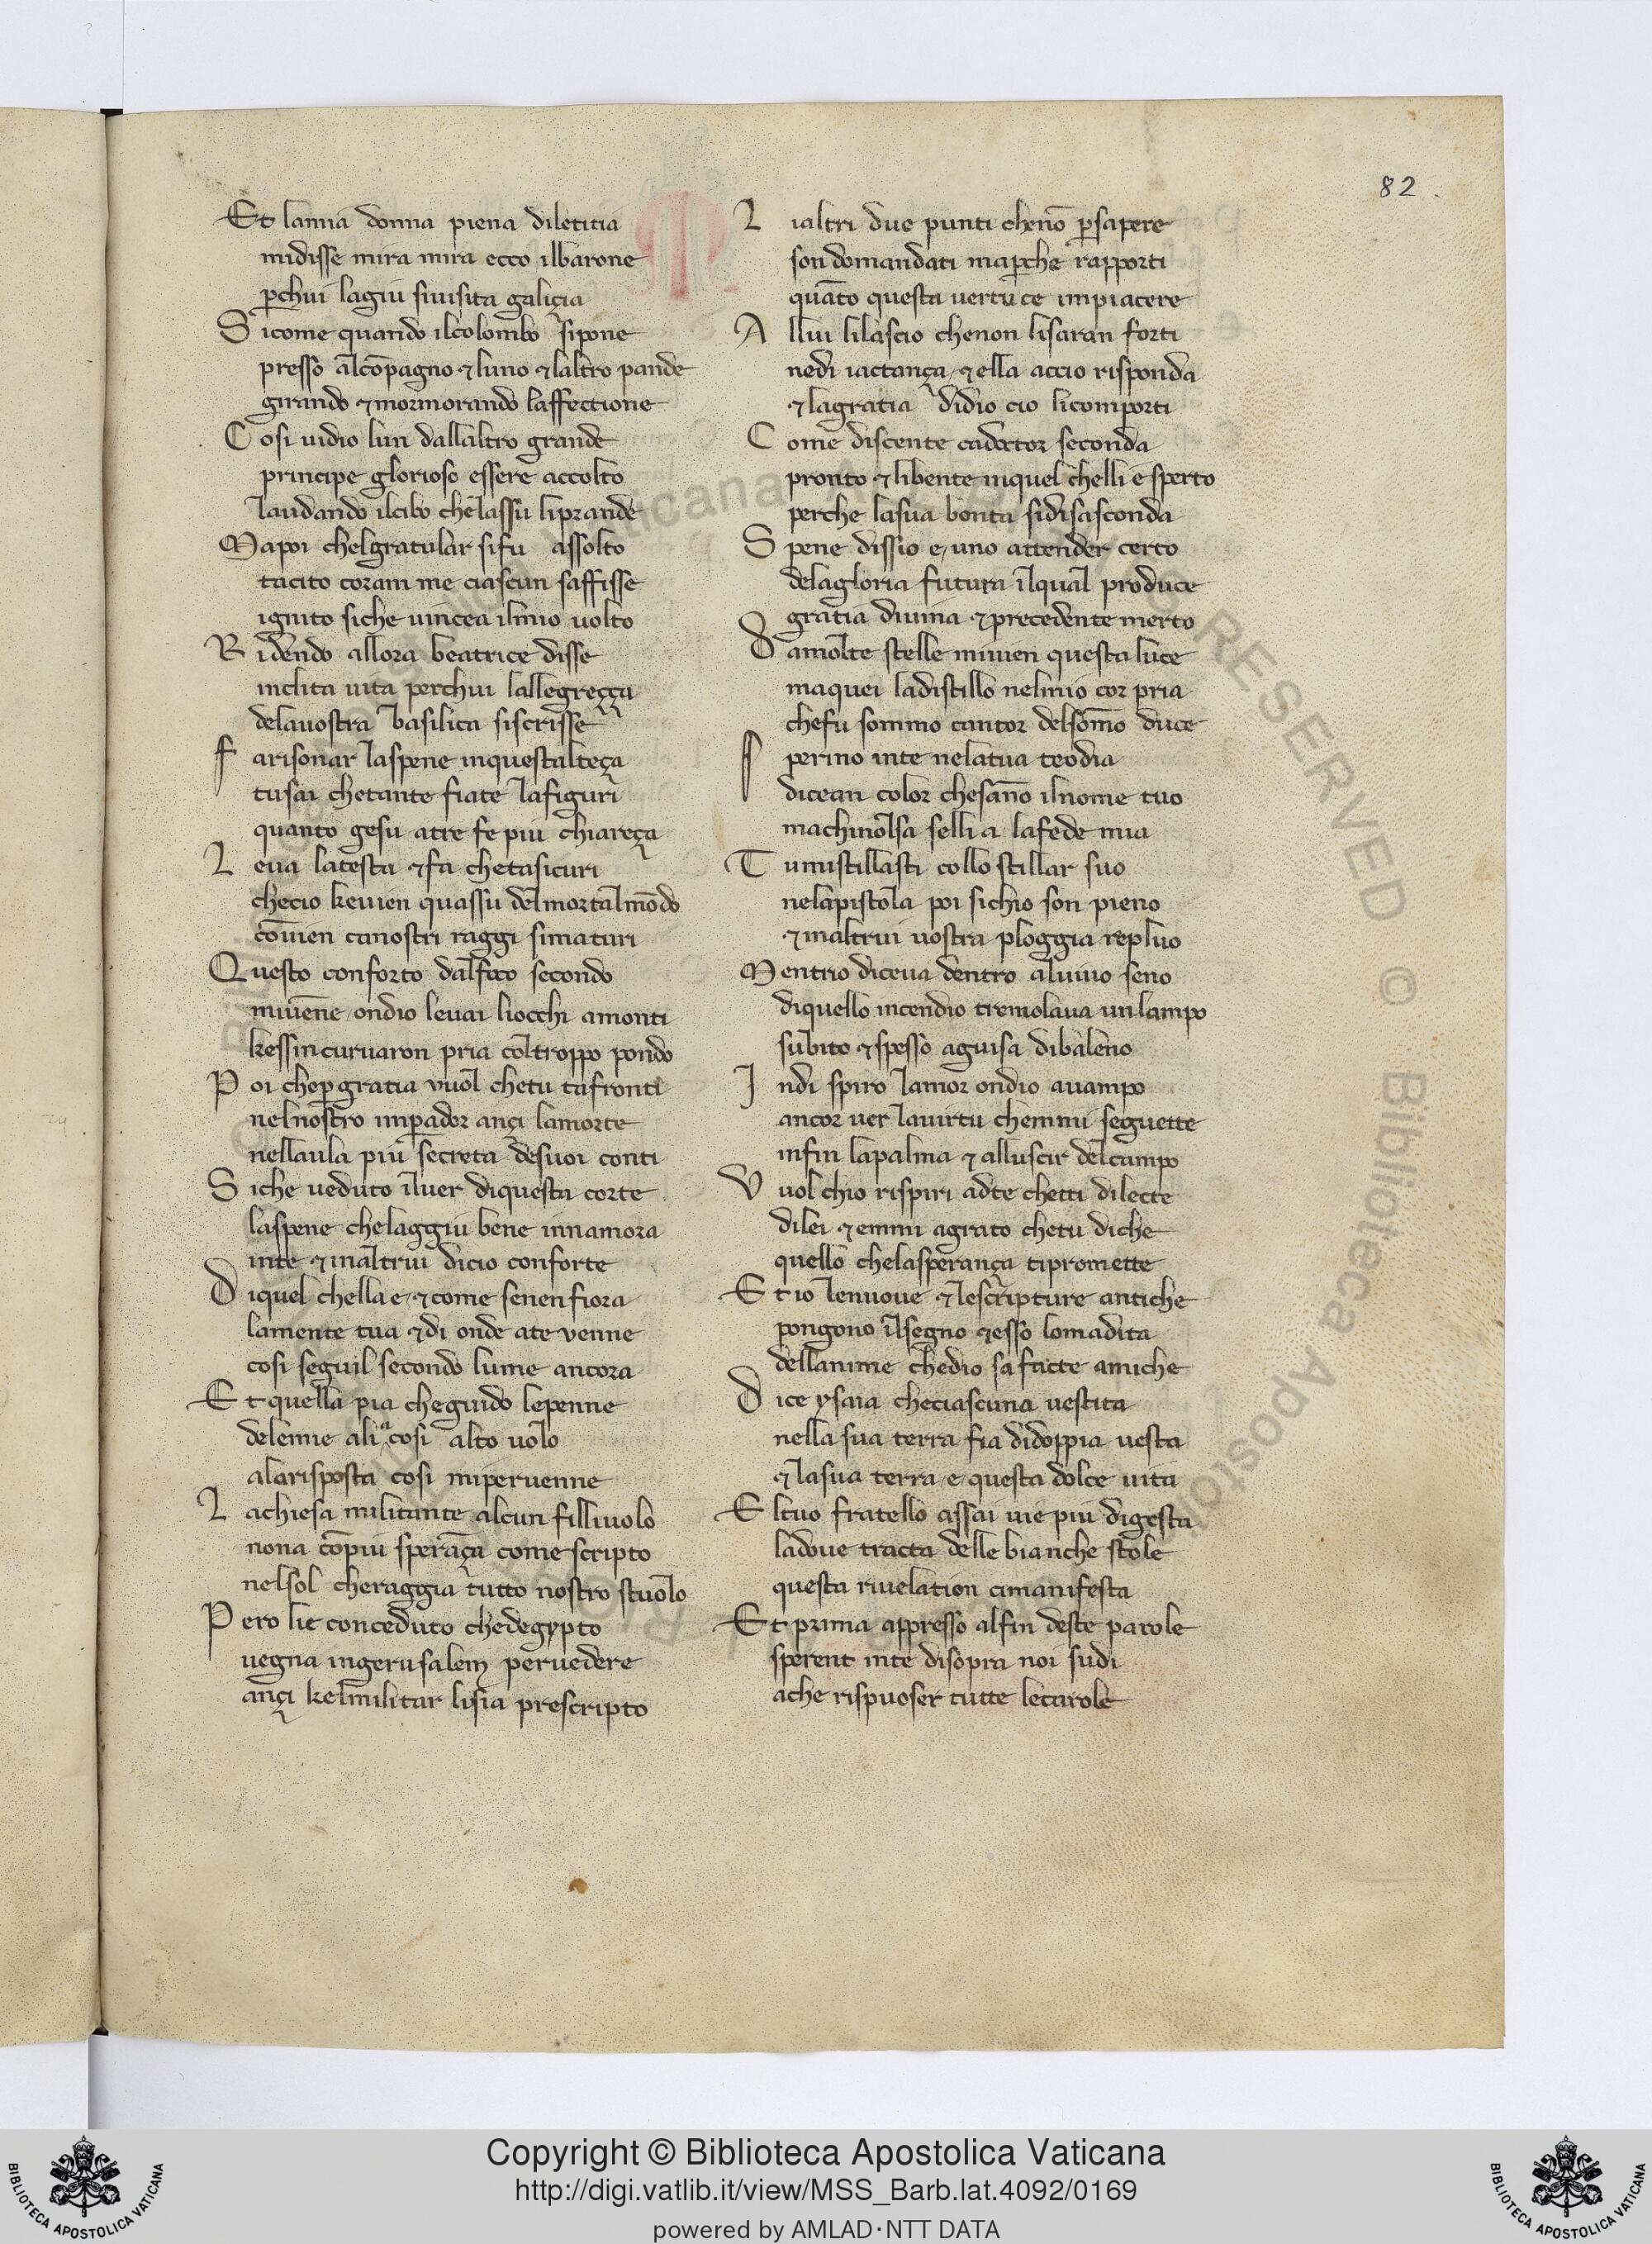 82.
Et lamia donna piena diletitia
midisse mira mira ecco ilbarone
p̲chui lagiu siuisita galiçia
Sicome quando ilcolombo sipone
presso alcōpagno ⁊ luno ⁊ laltro pande
girando ⁊ mormorando laffectione
Cosi uidio lun dallaltro grande
principe glorioso essere accolto
laudando ilcibo chelassu liprande
Mapoi chelgratular sifu assolto
tacito coram me ciascun saffisse
ignito siche uincea ilmio uolto
Ridendo allora beatrice disse
inclita uita perchui lallegreçça
delauostra basilica siscrisse
Farisonar laspene inquestalteça
tusai chetante fiate lafiguri
quanto gesu atre fe piu chiareça
Leua latesta ⁊ fa chetasicuri
checio keuien quassu delmortalmōdo
cōuien canostri raggi simaturi
Questo conforto dalfoco secondo
miuēne ondio leuai liocchi amonti
kessincuruaron pria coltroppo pondo
Poi chep̲ gratia vuol chetu tafronti
nelnostro imp̲ador ançi lamorte
nellaula piu secreta desuoi conti
Siche ueduto iluer diquesta corte
laspene chelaggiu bene innamora
inte ⁊ inaltrui dicio conforte
Diquel chella e ⁊ come senenfiora
lamente tua ⁊ di onde ate venne
cosi seguil secondo lume ancora
Et quella pia cheguido lepenne
delemie ali a cosi alto uolo
alarisposta cosi mi peruenne
Lachiesa militante alcun filliuolo
nona cōpiu sperāça come scripto
nelsol cheraggia tutto nostro stuolo
Pero lie conceduto chedegypto
uegna ingerusalem peruedere
ançi kelmilitar lisia prescripto
Lialtri due punti chenō p̲sapere
son domandati map̲che rapporti
quāto questa uertu ce impiacere
Allui lilascio chenon lisaran forti
nedi iactança ⁊ ella accio risponda
⁊ lagratia didio cio licomporti
Come discente cadoctor seconda
pronto ⁊ libente inquel chelli e sperto
perche lasua bonta sidisasconda
Spene dissio e uno attender certo
delagloria futura ilqual produce
gratia diuina ⁊ precedente merto
Damolte stelle miuien questa luce
maquei ladistillo nelmio cor pria
chefu sommo cantor delsōmo duce
Sperino inte nelatua teodia
dicean color chesanno ilnome tuo
machinolsa selli a lafede mia
Tumistillasti collo stillar suo
nelapistola poi sichio son pieno
⁊ inaltrui uostra ploggia repluo
Mentrio diceua dentro aluiuo seno
diquello incendio tremolaua un lampo
subito ⁊ spesso aguisa dibaleno
Indi spiro lamor ondio auampo
ancor uer lauirtu chemmi seguette
infin lapalma ⁊ alluscir delcampo
Vuol chio rispiri adte chetti dilecte
dilei ⁊ emmi agrato chetu diche
quello chelasperança tipromette
Et io lenuoue ⁊ lescripture antiche
pongono ilsegno ⁊ esso lomadita
dellanime chedio sa fatte amiche
Dice ysaia checiascuna uestita
nella sua terra fia didoppia uesta
⁊ lasua terra e questa dolce uita
Eltuo fratello assai uie piu digesta
ladoue tracta delle bianche stole
questa riuelation cimanifesta
Et prima appresso alfin deste parole
sperent inte disopra noi sudi
ache rispuoser tutte lecarole
Copyright © Biblioteca Apostolica Vaticana
http://digi.vatlib.it/view/MSS_Barb.lat.4092/0169
powered by AMLAD·NTT DATA
BIBLIOTECA APOSTOLICA VATICANA
BIBLIOTECA APOSTOLICA VATICANA